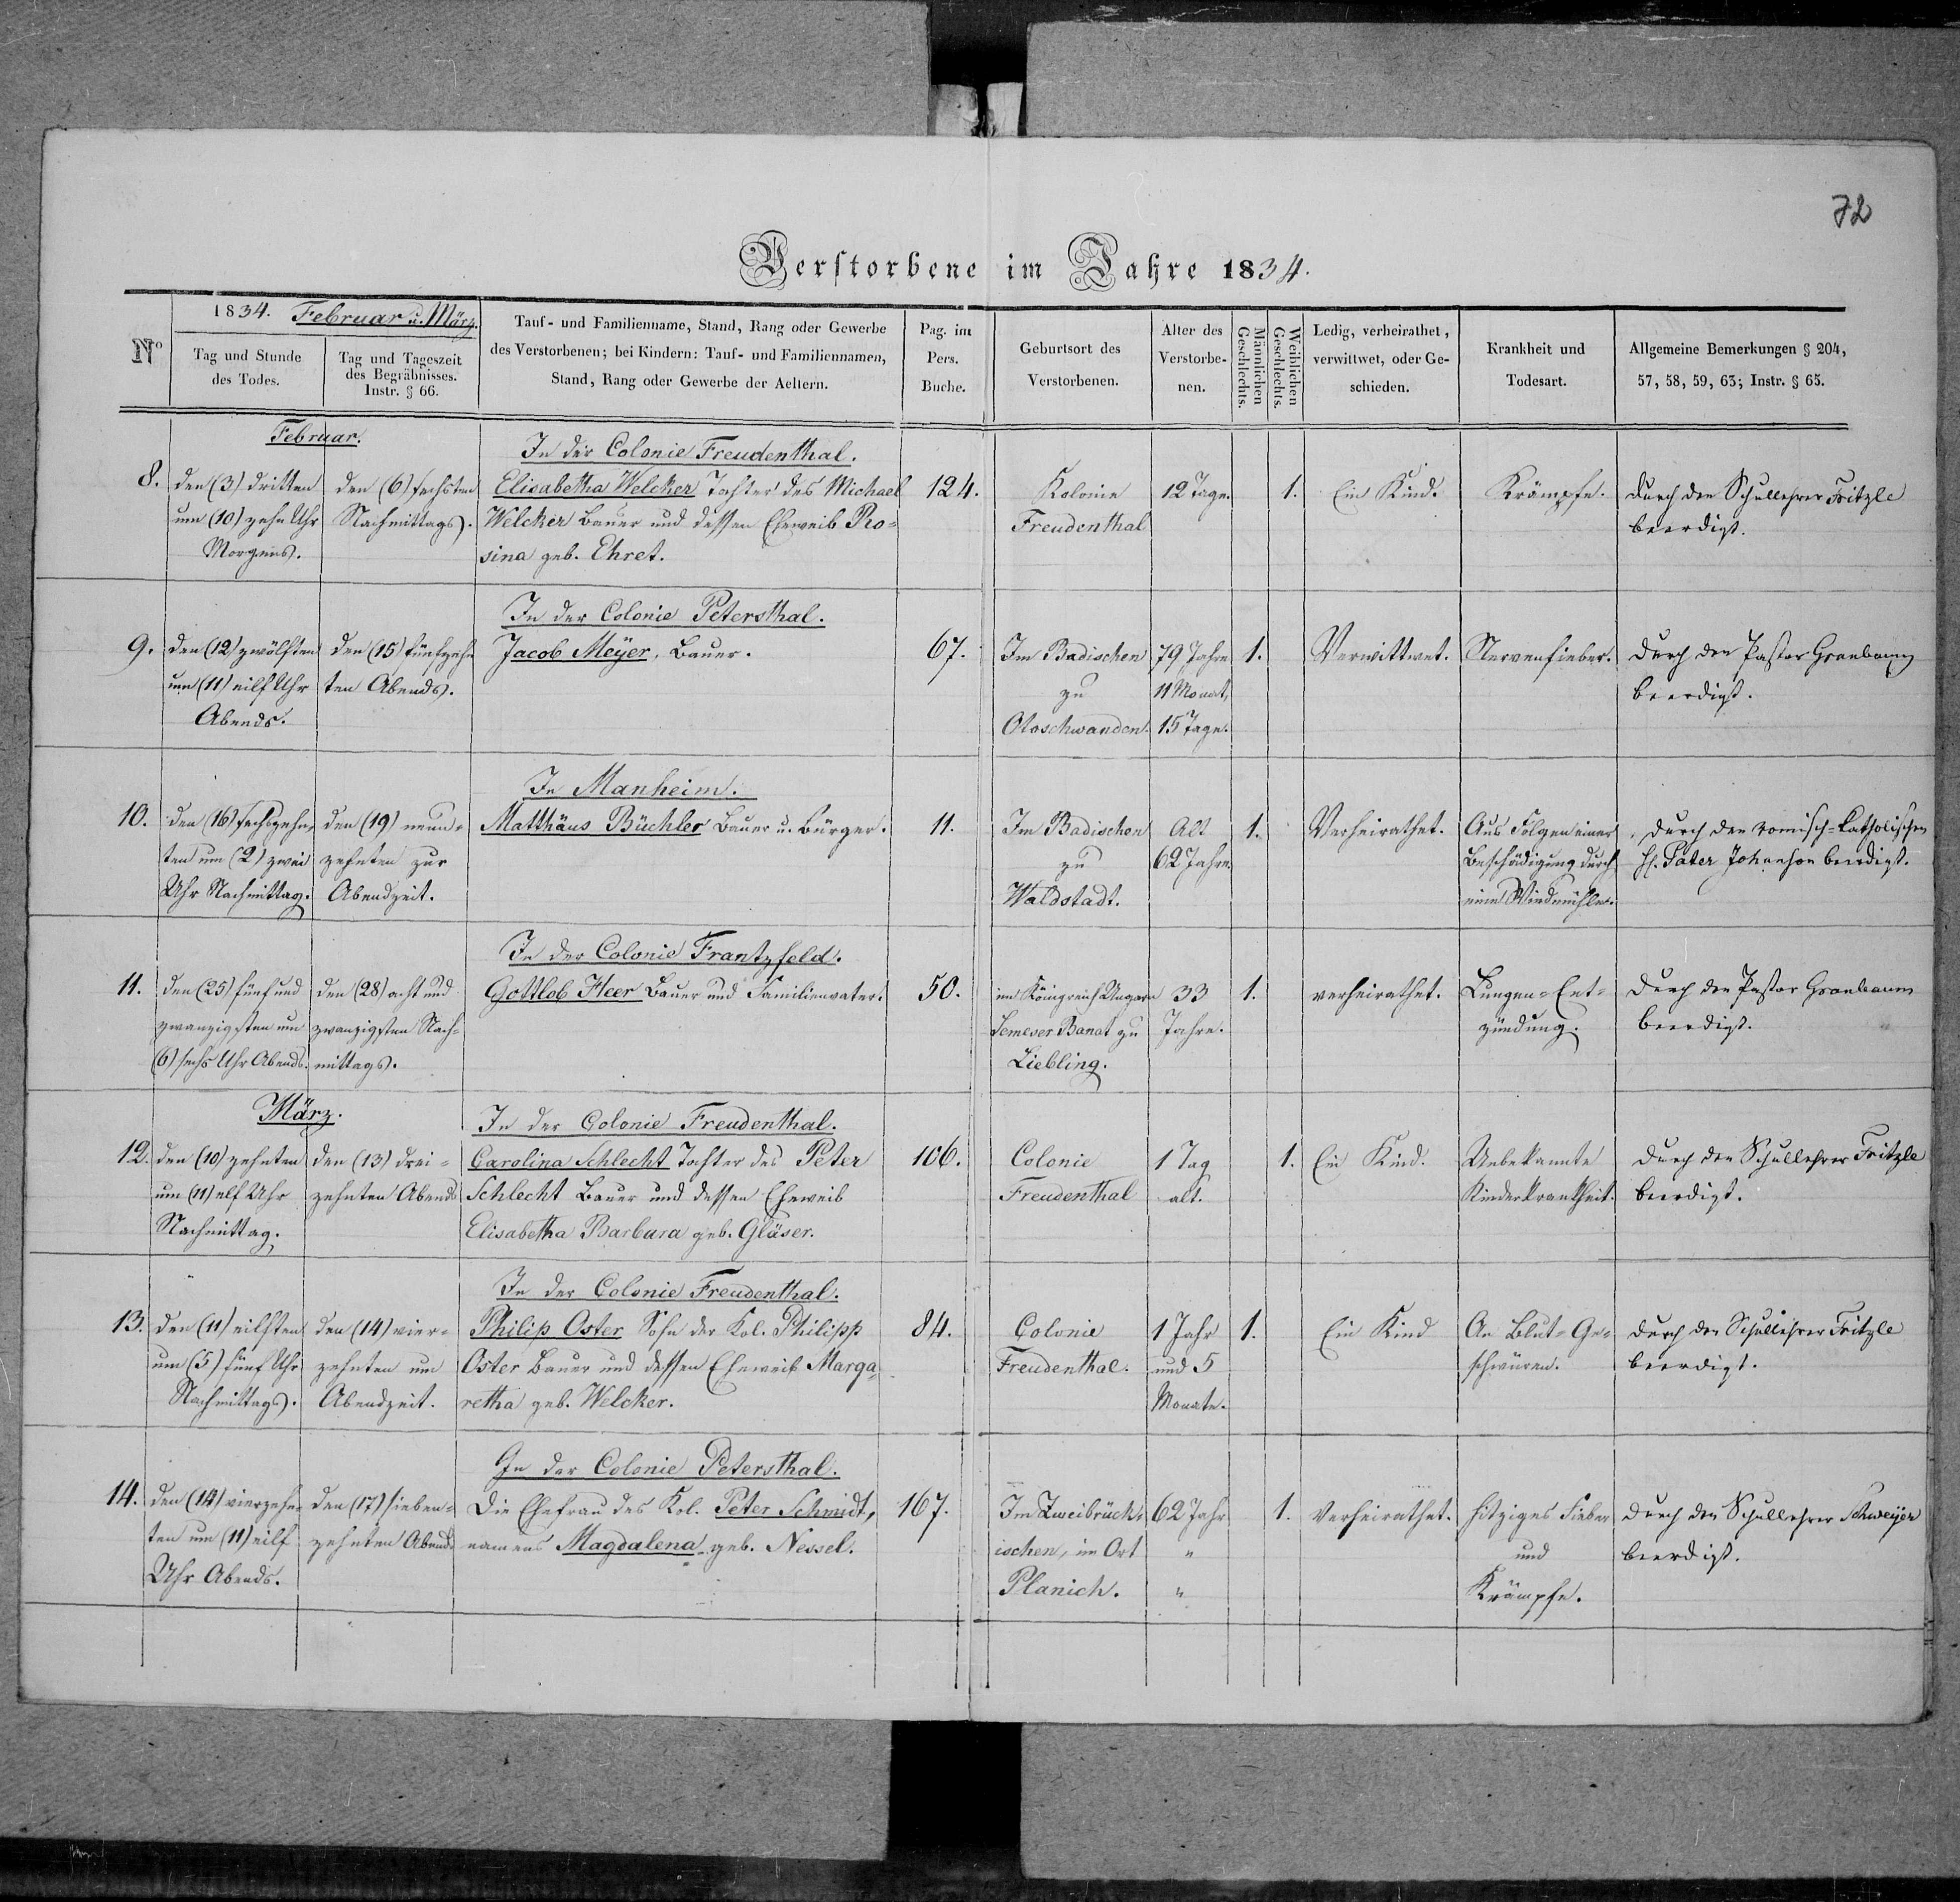 72
Verstorbene im Jahre 1834.
No
1834. Februar u. März.
Tag und Stunde
des Todes.
Tag und Tageszeit
des Begräbnisses.
Instr. § 66.
Tauf- und Familienname, Stand, Rang oder Gewerbe
des Verstorbenen; bei Kindern: Tauf- und Familiennamen,
Stand, Rang oder Gewerbe der Aeltern.
Pag. im
Pers.
Buche.
Geburtsort des
Verstorbenen.
Alter des
Verstorbe-
nen.
Männlichen
Geschlechts.
Weiblichen
Geschlechts.
Ledig, verheirathet,
verwittwet, oder Ge-
schieden.
Krankheit und
Todesart.
Allgemeine Bemerkungen § 204,
57, 58, 59, 63; Instr. § 65.
Februar.
In der Colonie Freudenthal.
8.
den (3) dritten
um (10) zehn Uhr
Morgens.
den (6) sechsten
Nachmittags.
Elisabetha Welcker Tochter des Michael
Welcker Bauer und dessen Eheweib Ro-
sina geb. Ehret.
124.
Kolonie
Freudenthal
12 Tage.
1.
Ein Kind.
Krämpfe.
durch den Schullehrer Fritzle
beerdigt.
In der Colonie Petersthal.
9.
den (12) zwölften
um (11) eilf Uhr
Abends.
den (15) fünfzehn
ten Abends.
Jacob Meyer, Bauer.
67.
Im Badischen
zu
Oloschwanden.
79 Jahre
11 Monat,
15 Tage.
1.
Verwittwet.
Nervenfieber.
durch den Pastor Granbaum
beerdigt.
In Manheim.
10.
den (16) sechszehn-
ten um (2) zwei
Uhr Nachmittag.
den (19) neun-
zehnten zur
Abendzeit.
Matthäus Büchler Bauer u. Bürger.
11.
Im Badischen
zu
Waldstadt.
Alt
62 Jahre.
1.
Verheirathet.
Aus Folgen einer
Beschädigung durch
eine Windmühle.
durch den romisch-katholischen
H. Pater Johanson beerdigt.
In der Colonie Frantzfeld.
11.
den (25) fünf und
zwanzigsten um
(6) sechs Uhr Abends.
den (28) acht und
zwanzigsten Nach-
mittags.
Gottlob Heer Bauer und Familienvater.
50.
im Königreich Ungarn
Temeser Banat zu
Liebling.
33
Jahre.
1.
verheirathet.
Lungen-Ent-
zündung.
durch den Pastor Granbaum
beerdigt.
März.
In der Colonie Freudenthal.
12.
den (10) zehnten
um (11) elf Uhr
Nachmittag.
den (13) drei-
zehnten Abends
Carolina Schlecht Tochter des Peter
Schlecht Bauer und dessen Eheweib
Elisabetha Barbara geb. Gläser.
106.
Colonie
Freudenthal
1 Tag
alt.
1.
Ein Kind.
Unbekannte
Kinderkrankheit.
durch den Schullehrer Fritzle
beerdigt.
In der Colonie Freudenthal.
13.
den (11) eilften
um (5) fünf Uhr
Nachmittags.
den (14) vier-
zehnten um
Abendzeit.
Philip Oster Sohn der Kol. Philipp
Oster Bauer und dessen Eheweib Marga-
retha geb. Welcker.
84.
Colonie
Freudenthal.
1 Jahr
und 5
Monate.
1.
Ein Kind
An Blut-Ge-
schwüren.
durch den Schullehrer Fritzle
beerdigt.
In der Colonie Petersthal.
14.
den (14) vierzehn-
ten um (11) eilf
Uhr Abends.
den (17) sieben-
zehnten Abends
Die Ehefrau des Kol. Peter Schmidt,
namens Magdalena geb. Nessel.
167.
Im Zweibrück-
ischen, im Ort
Planich.
62 Jahr
"
"
1.
Verheirathet.
hitziges Fieber
und
Krämpfe.
durch den Schullehrer Schweyer
beerdigt.